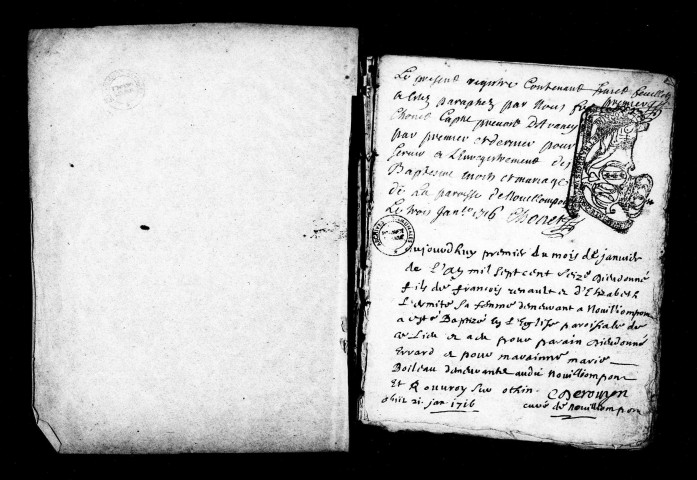 Le present registre Contenant huict feuillets
a estez paraphez par Nous
prevost
par premier et dernier pour
servir a L'enregistrement des
Baptesme morts et mariage
de La paroisse de Nouillompon
Le trois Janr. 1716 Thonet
aujourdhuy premier du mois de janvier
de L'an mil sept cent seize dieudonné
fils de francois renault et d'Elizabeth
L'ermite sa femme demeurant a Nouillompon
a esté Baptizé en L'Eglise paroissiale de
ce Lieu et a de pour parain dieudonné
Errard et pour maraine marie
Boileau demeurants audit Nouillompon
Et Rouvroy sur othin.
obiit 21. jan 1716 curé de nouillompon